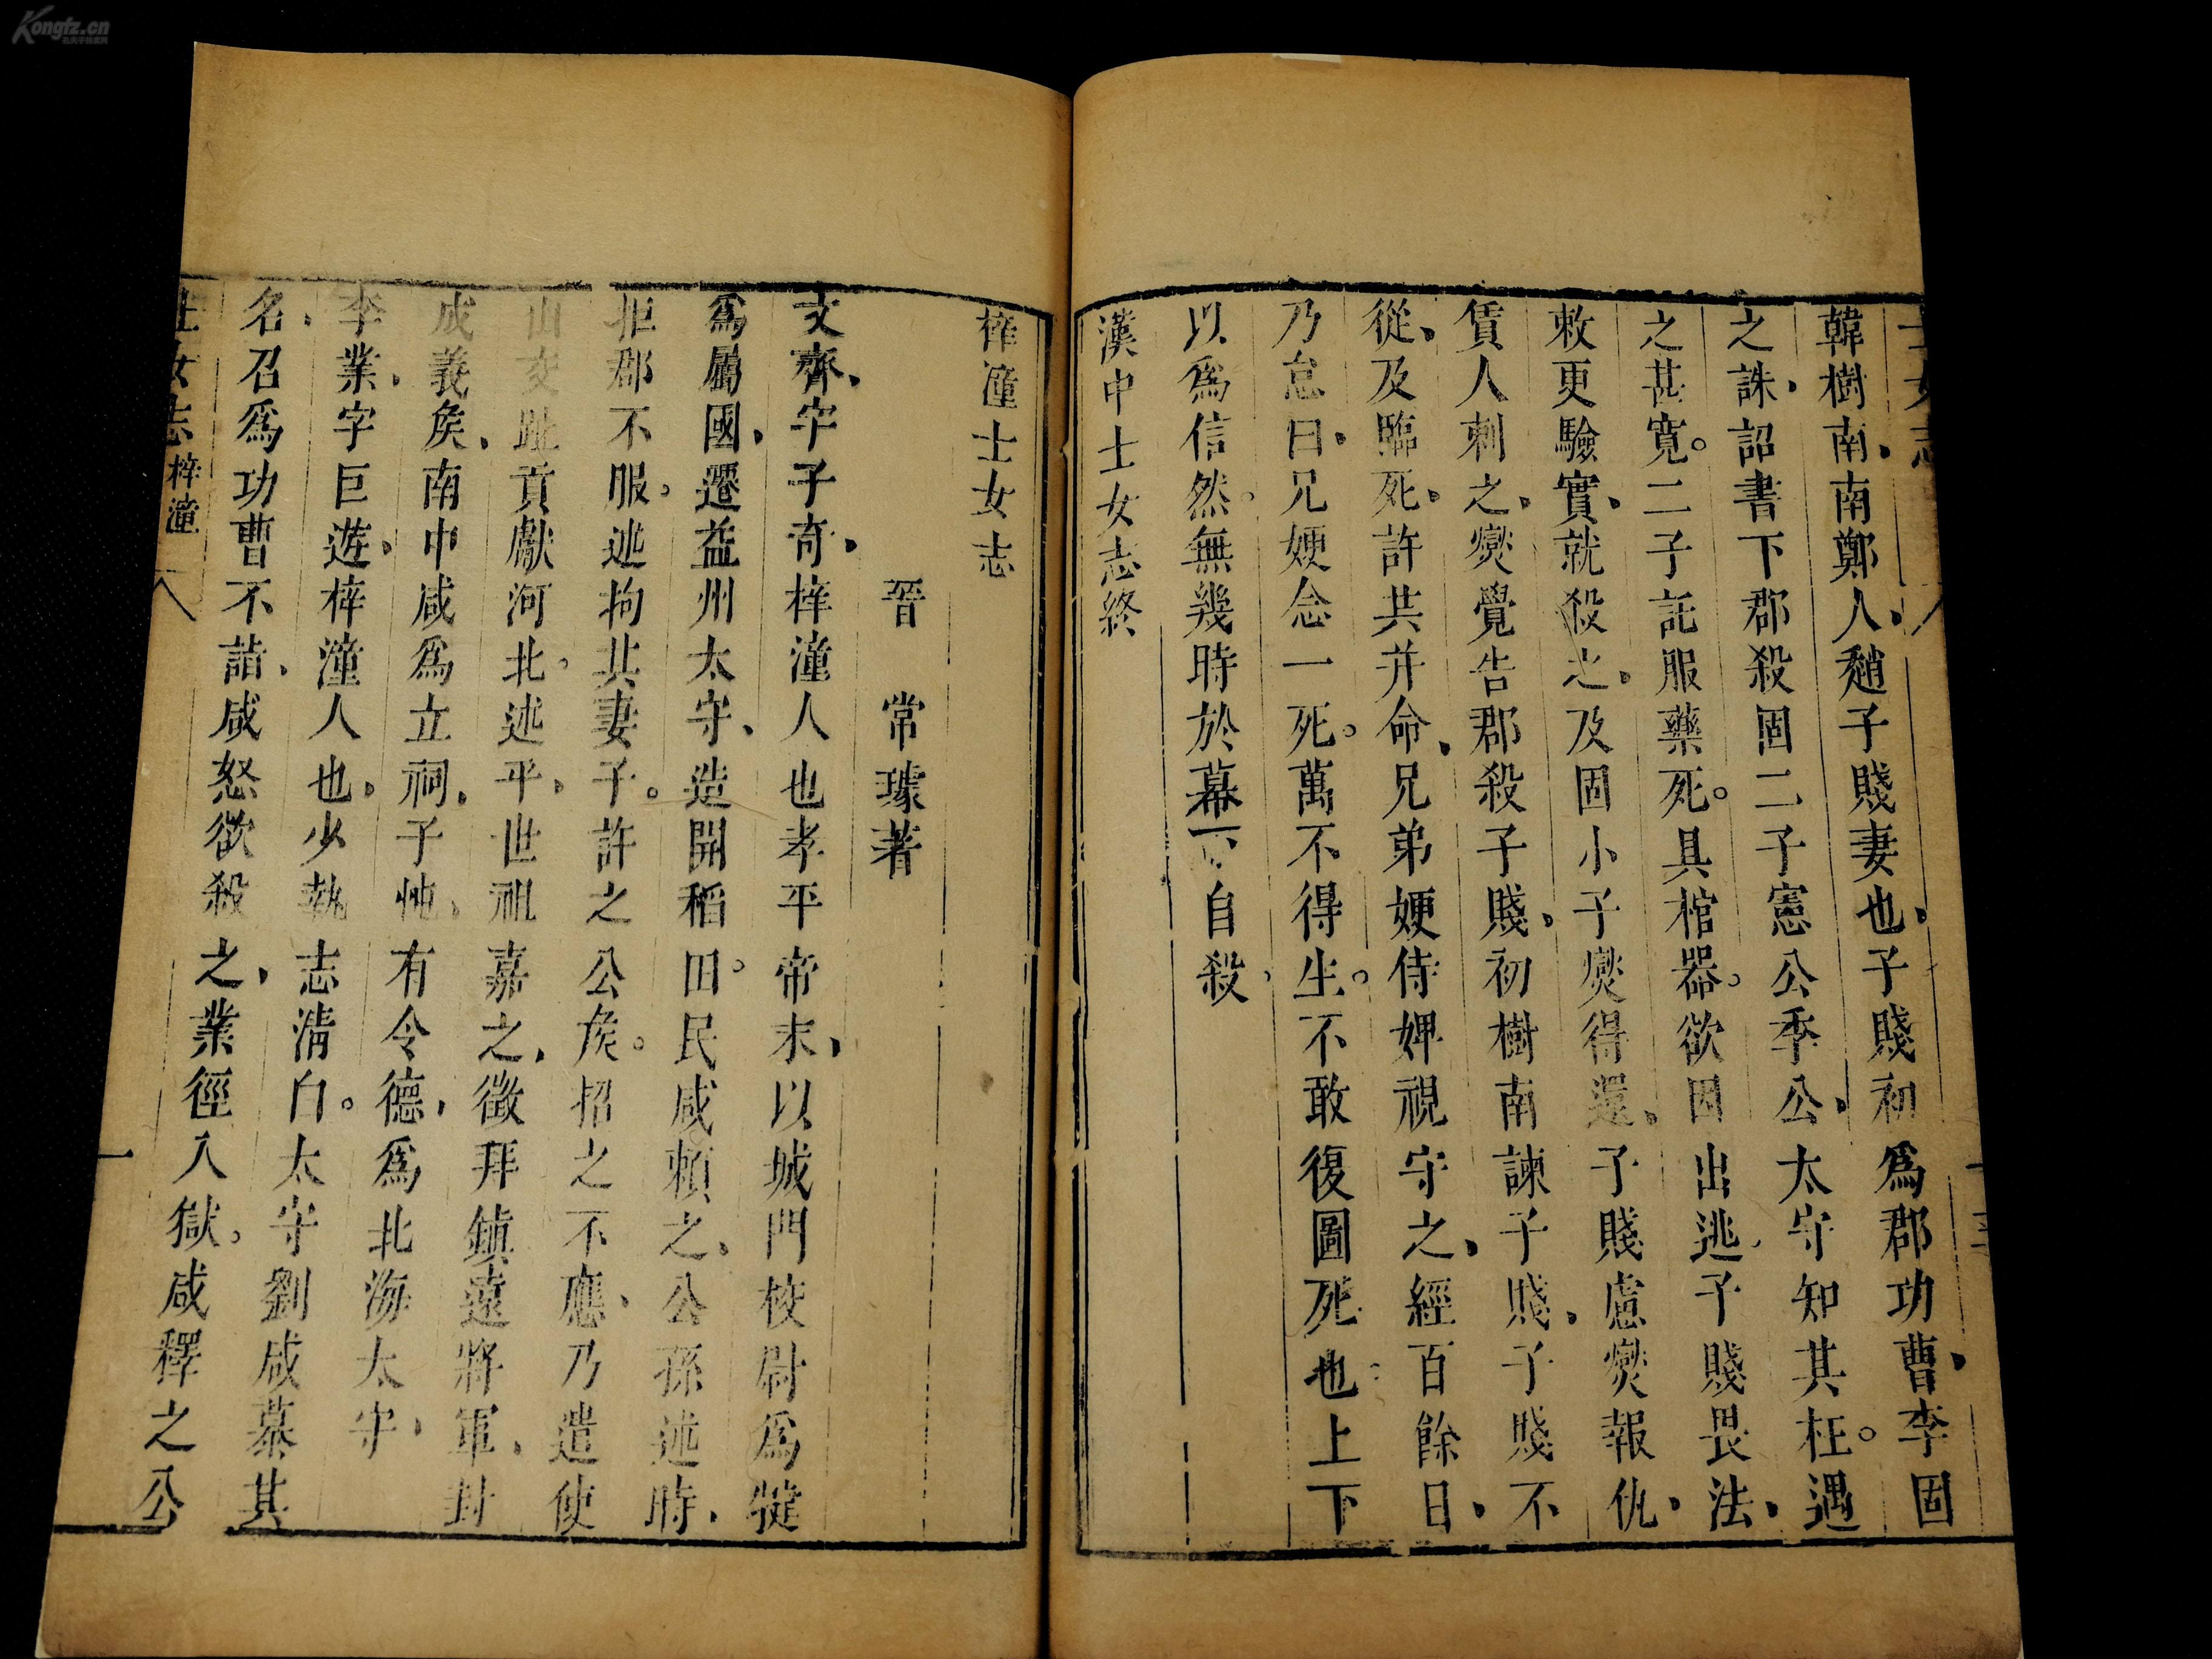 Kongfz.cn
孔夫子旧书网
士女志
韓樹南、南鄭人、趙子賤妻也、子賤初為郡功曹、李固
之誅、詔書下郡殺固二子憲公季公、太守知其枉。遇
之甚寬。二子託服藥死。具棺器。欲因出逃、子賤畏法、
敕更驗實、就殺之、及固小子爕得還、子賤慮爕報仇、
賃人刺之、爕覺告郡殺子賤、初樹南諫子賤、子賤不
從、及臨死、許共并命、兄弟㛐侍婢視守之、經百餘日、
乃怠曰、兄㛐念一死。萬不得生。不敢復圖死也上下
以為信然。無幾時於幕下、自殺、
漢中士女志終
梓潼士女志
晉 常璩著
文齊、字子奇、梓潼人也孝平帝末、以城門校尉為犍
為屬國、遷益州太守、造開稻田。民咸賴之、公孫述時、
拒郡不服。述拘其妻子。許之公矦。招之不應、乃遣使
由交趾貢獻河北。述平、世祖嘉之、徵拜鎮遠將軍、封
成義矦、南中咸為立祠。子忳、有令德、為北海太守、
李業、字巨遊、梓潼人也、少執志清白。太守劉咸慕其
名、召為功曹不詣、咸怒欲殺之、業徑入獄。咸釋之公
士女志 梓潼 八 一